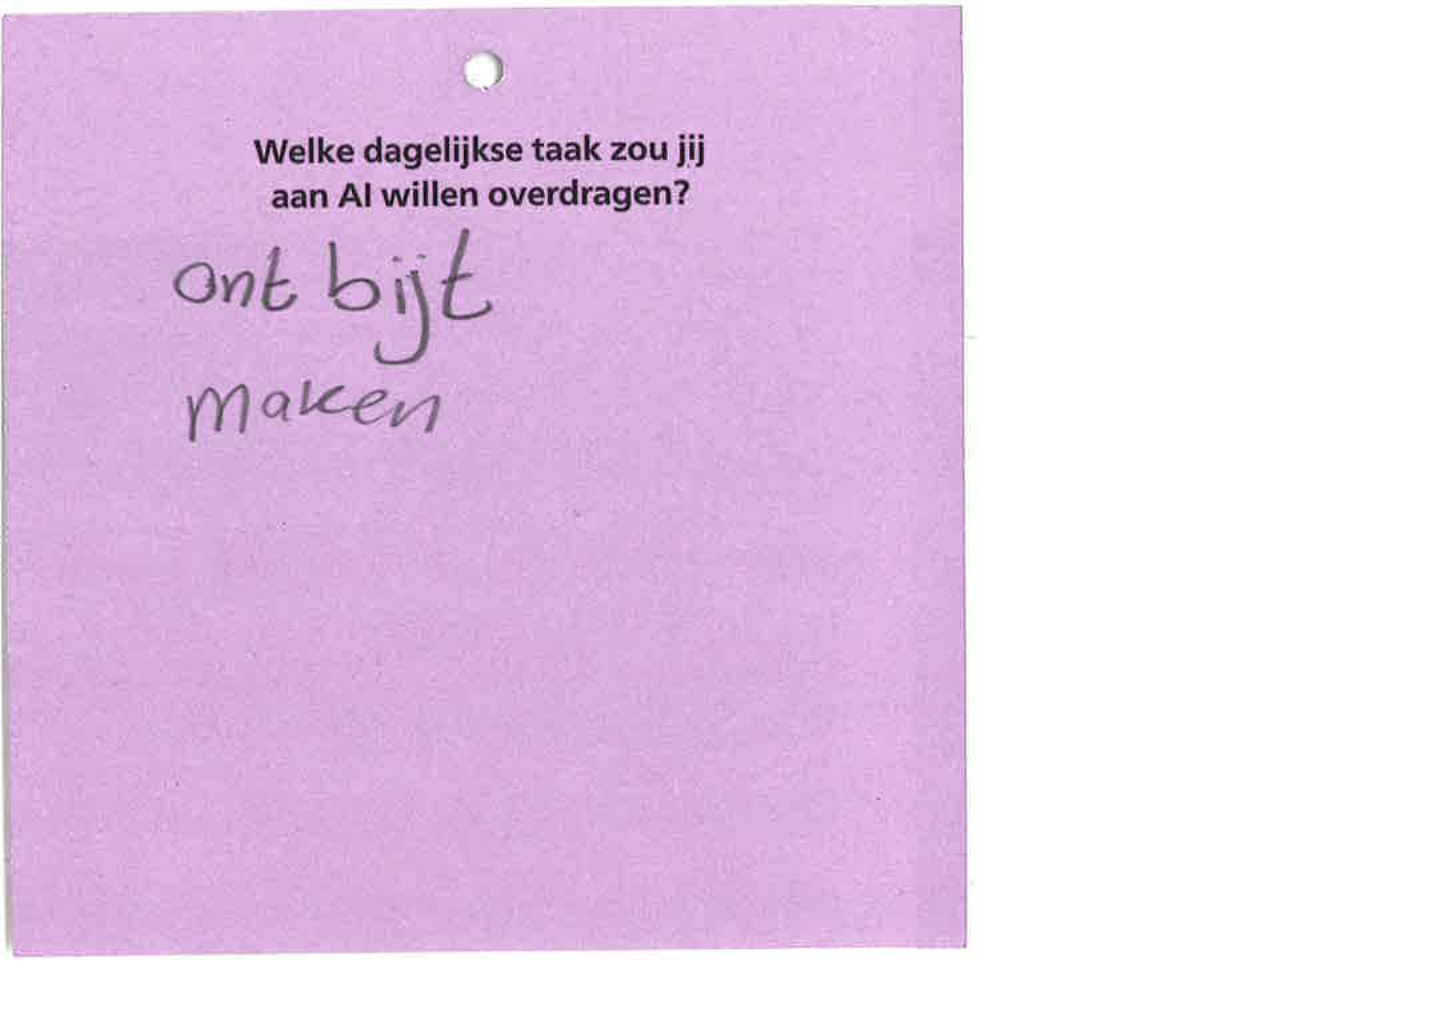 Welke dagelijkse taak zou jij
aan AI willen overdragen?
ont bijt
maken